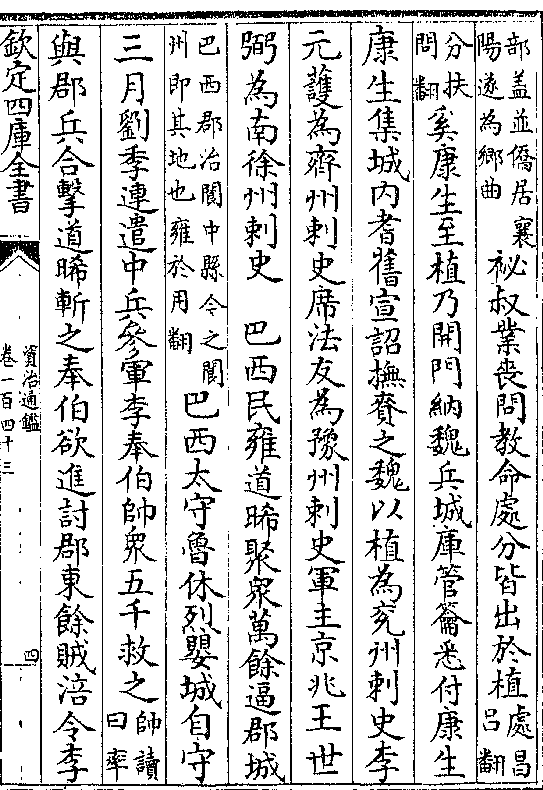 部蓋並僑居襄
陽遂為鄉曲
祕叔業喪問教命處分皆出於植
處昌
呂翻
分扶
問翻
奚康生至植乃開門納魏兵城庫管籥悉付康生
康生集城内耆舊宣詔撫賚之魏以植為兖州刺史李
元護為齊州刺史席法友為豫州刺史軍主京兆王世
弼為南徐州刺史　巴西民雍道晞聚衆萬餘逼郡城
巴西郡治閬中縣今之閬
州即其地也雍於用翻
巴西太守魯休烈嬰城自守
三月劉季連遣中兵參軍李奉伯帥衆五千救之
帥讀
曰率
與郡兵合擊道晞斬之奉伯欲進討郡東餘賊涪令李
欽定四庫全書
資治通鑑
卷一百四十三
四